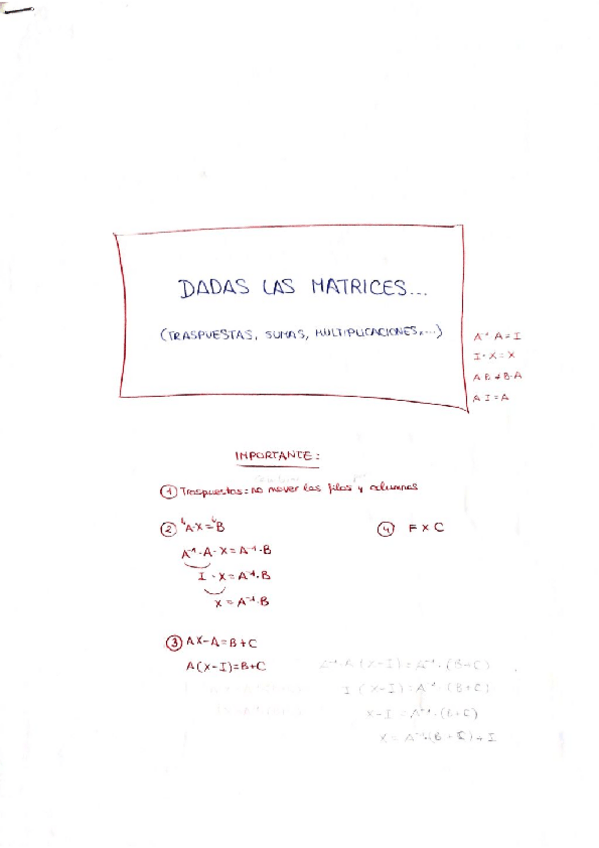 DADAS LAS MATRICES...
(TRASPUESTAS, SUMAS, MULTIPLICACIONES,...)
A⁻¹ A = I
I · X = X
A B ≠ B · A
A I = A
IMPORTANTE:
① Traspuestas: no mover las filas y columnas
② A·X = B
A⁻¹·A·X = A⁻¹·B
I · X = A⁻¹·B
X = A⁻¹·B
③ AX-A=B+C
A(X-I)=B+C
A⁻¹·A(X-I)=A⁻¹·(B+C)
I(X-I)=A⁻¹·(B+C)
X-I = A⁻¹·(B+C)
X = A⁻¹·(B+C)+I
④ F X C